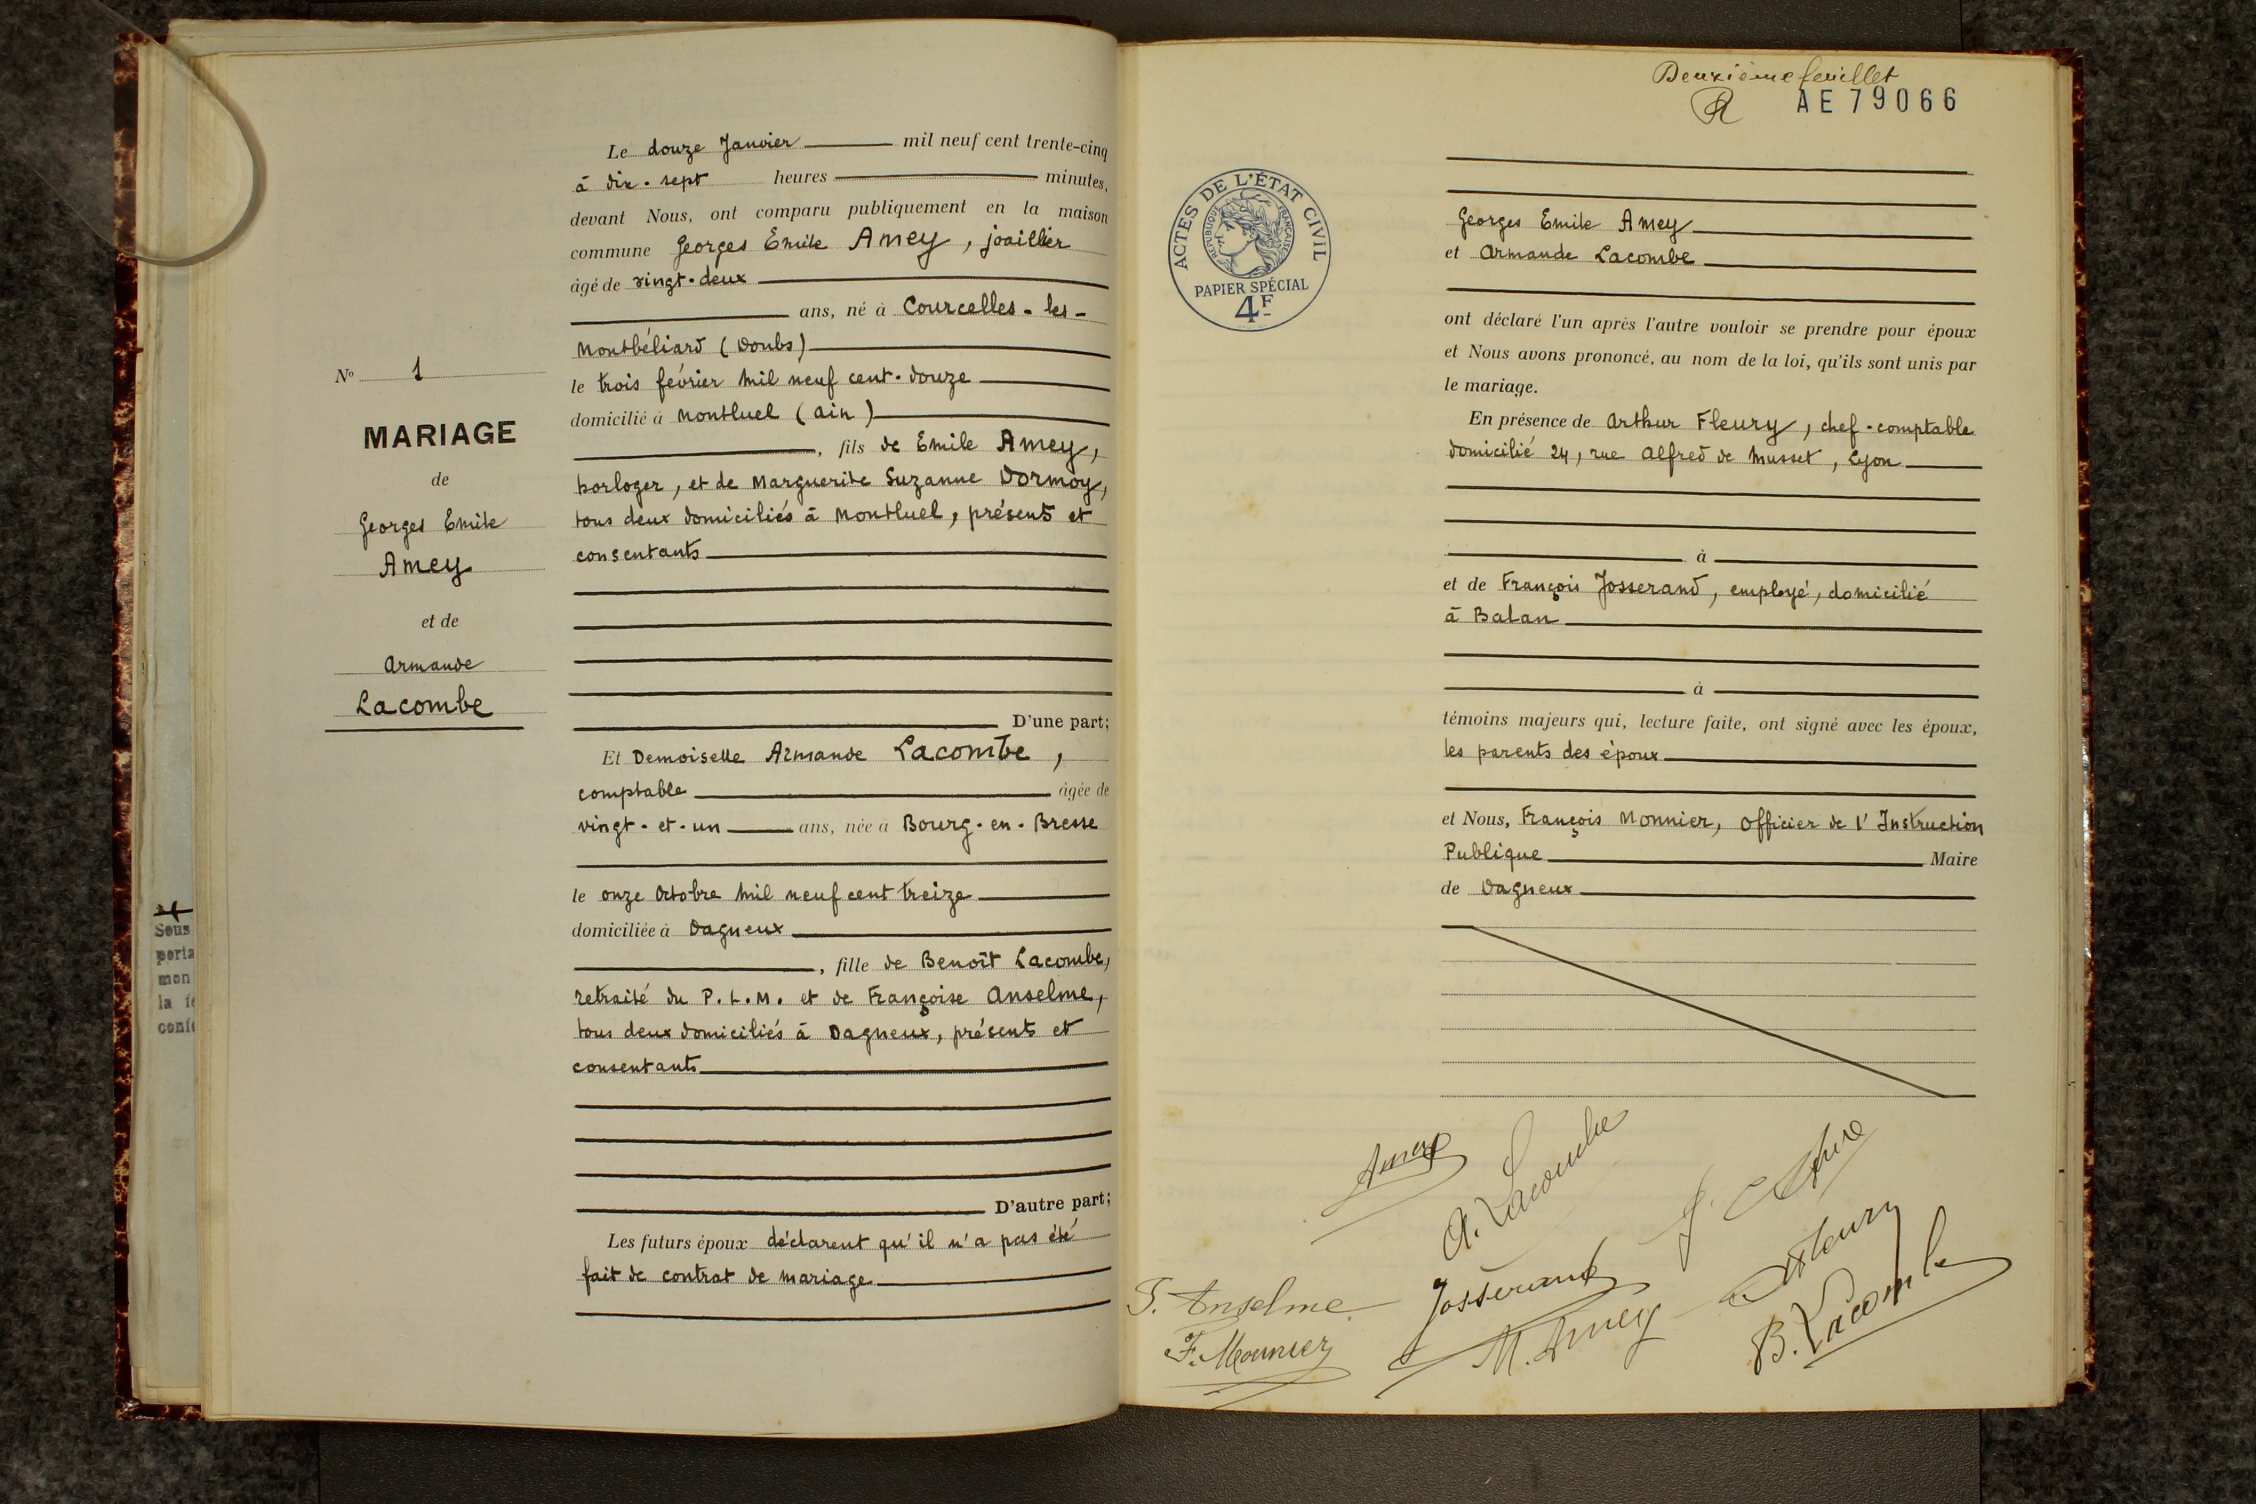 Le douze Janvier mil neuf cent trente-cinq
à dix-sept heures minutes,
devant Nous, ont comparu publiquement en la maison
commune Georges Emile Amey, joaillier
âgé de vingt-deux
ans, né à Courcelles-les-
Montbéliard (Doubs)
le trois février mil neuf cent-douze
domicilié à Montluel (Ain)
, fils de Emile Amey,
horloger, et de Marguerite Suzanne Dormoy,
tous deux domiciliés à Montluel, présents et
consentants
D'une part;
Et Demoiselle Armande Lacombe,
comptable âgée de
vingt-et-un ans, née à Bourg-en-Bresse
le onze Octobre mil neuf cent treize
domiciliée à Dagneux
, fille de Benoît Lacombe,
retraité du P.L.M. et de Françoise Anselme,
tous deux domiciliés à Dagneux, présents et
consentants
D'autre part;
Les futurs époux déclarent qu'il n'a pas été
fait de contrat de mariage
N° 1
MARIAGE
de
Georges Emile
Amey
et de
Armande
Lacombe
Sous
porta
mon
la
Deuxième feuillet
AE 79066
ACTES DE L'ÉTAT CIVIL
RÉPUBLIQUE FRANÇAISE
PAPIER SPÉCIAL
4F
Georges Emile Amey
et Armande Lacombe
ont déclaré l'un après l'autre vouloir se prendre pour époux
et Nous avons prononcé, au nom de la loi, qu'ils sont unis par
le mariage.
En présence de Arthur Fleury, chef-comptable
domicilié 24, rue Alfred de Musset, Lyon
à
et de François Josserand, employé, domicilié
à Balan
à
témoins majeurs qui, lecture faite, ont signé avec les époux,
les parents des époux
et Nous, François Monnier, Officier de l'Instruction
Publique Maire
de Dagneux
Amey
A. Lacombe
Josserand
Fleury
F. Anselme
M. Amey
B. Lacombe
F. Monnier